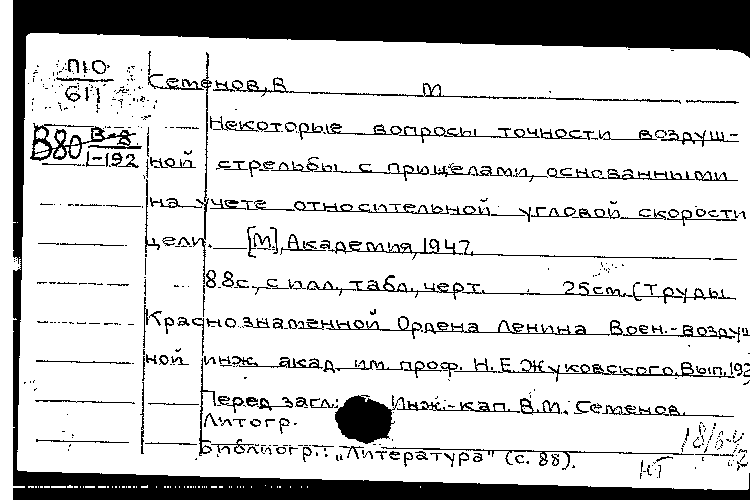 П10
611
Семенов, В М
В80 В-8
1-192
Некоторые вопросы точности воздуш-
ной стрельбы с прицелами, основанными
на учете относительной угловой скорости
цели. [М], Академия, 1947.
88с., с илл., табл., черт. 25см. (Труды
Краснознаменной Ордена Ленина Воен.-воздуш
ной инж. акад. им. проф. Н.Е.Жуковского. Вып. 192
Перед загл.: Инж.-кап. В.М. Семенов.
Литогр.
Библиогр.: „Литература" (с. 88).
НГ